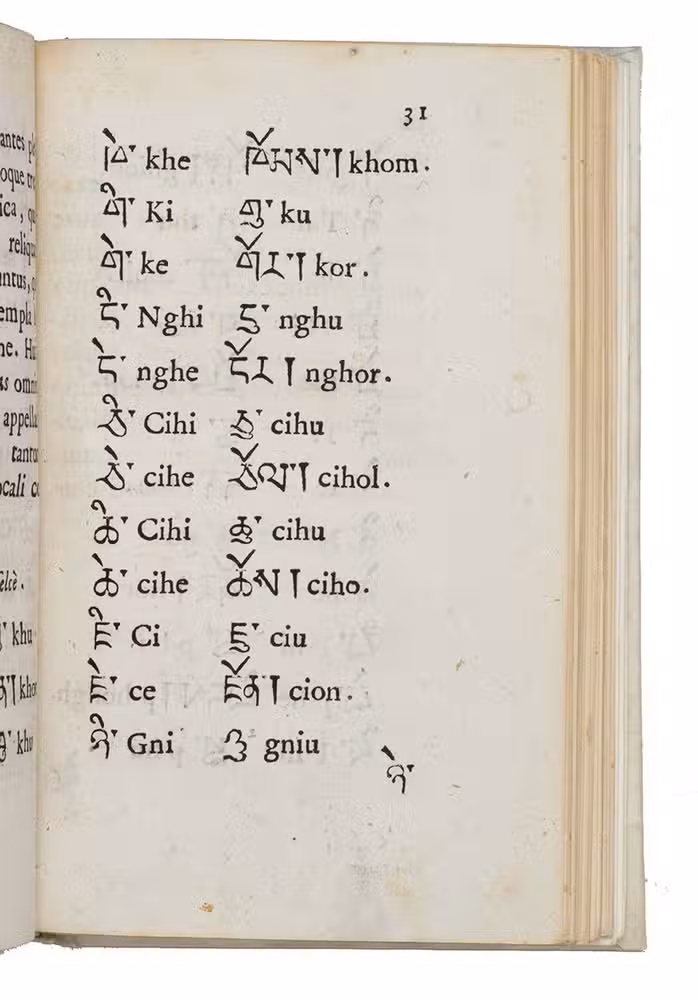 31
ཁེ་ khe ཁོམས་། khom.
གི་ Ki གུ་ ku
གེ་ ke གོར་། kor.
ངི་ Nghi ངུ་ nghu
ངེ་ nghe ངོར། nghor.
ཅི་ Cihi ཅུ་ cihu
ཅེ་ cihe ཅོལ་། cihol.
ཆི་ Cihi ཆུ་ cihu
ཆེ་ cihe ཆོས། ciho.
ཇི་ Ci ཇུ་ ciu
ཇེ་ ce ཇོན། cion.
ཉི་ Gni ཉུ gniu
ཉེ་